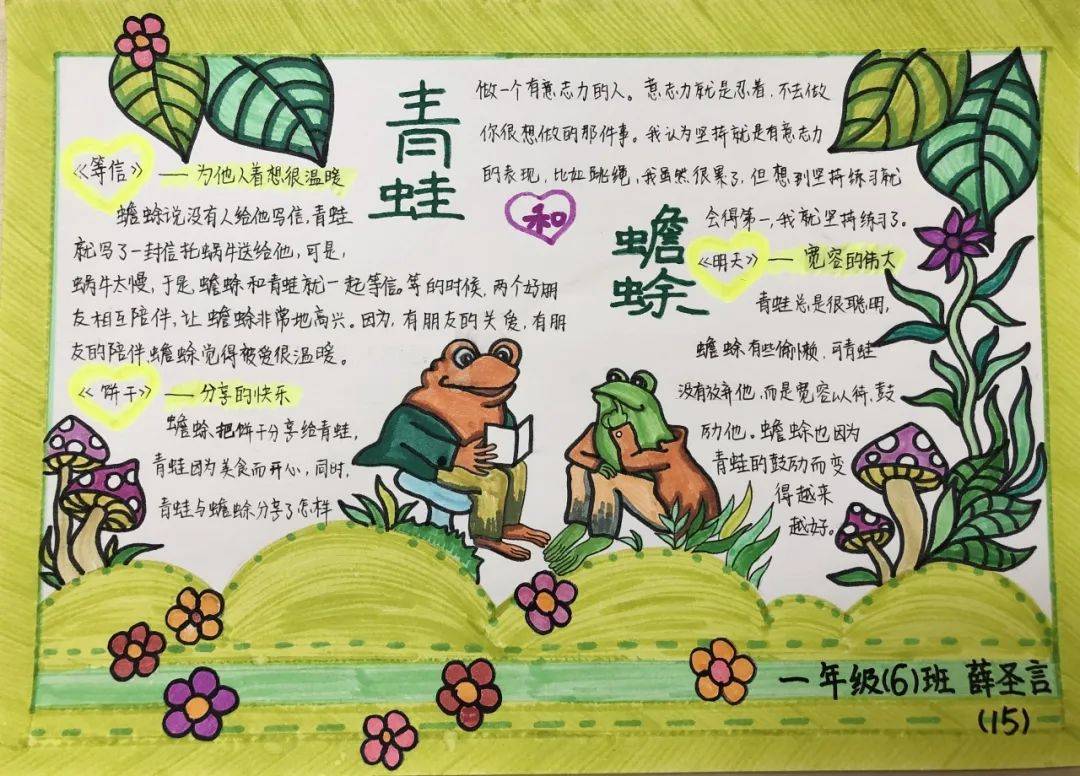 青蛙
和
蟾蜍
《等信》——为他人着想很温暖
蟾蜍说没有人给他写信,青蛙
就写了一封信托蜗牛送给他,可是,
蜗牛太慢,于是,蟾蜍和青蛙就一起等信。等的时候,两个好朋
友相互陪伴,让蟾蜍非常地高兴。因为,有朋友的关爱,有朋
友的陪伴蟾蜍觉得被爱很温暖。
《饼干》——分享的快乐
蟾蜍把饼干分享给青蛙,
青蛙因为美食而开心,同时,
青蛙与蟾蜍分享了怎样
做一个有意志力的人。意志力就是忍着,不去做
你很想做的那件事。我认为坚持就是有意志力
的表现,比如跳绳,我虽然很累了,但想到坚持练习就
会得第一,我就坚持练习了。
《明天》——宽容的伟大
青蛙总是很聪明,
蟾蜍有些偷懒,可青蛙
没有放弃他,而是宽容以待,鼓
励他。蟾蜍也因为
青蛙的鼓励而变
得越来
越好。
一年级(6)班 薛圣言
(15)